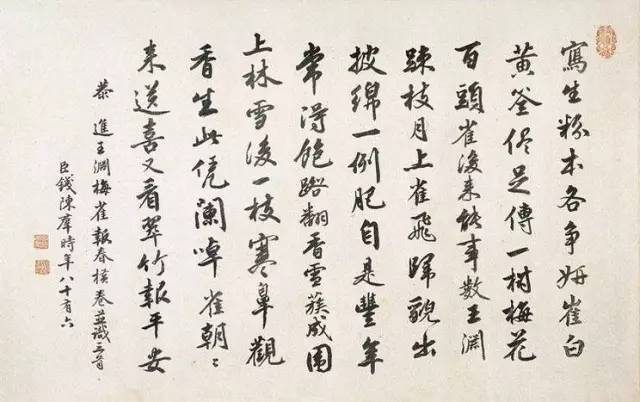 寫生粉本各爭妍崔白
黃筌侭足傳一樹梅花
百頭雀後來能事數王淵
疎枝月上雀飛歸貌出
披綿一例肥自是豐年
常得飽踏翻香雪簇成圍
上林雪後一枝寒鼻觀
香生此凭闌啅雀朝〻
來送喜又看翠竹報平安
恭 進王淵梅雀報春橫卷並識三首
臣錢陳羣時年八十有六